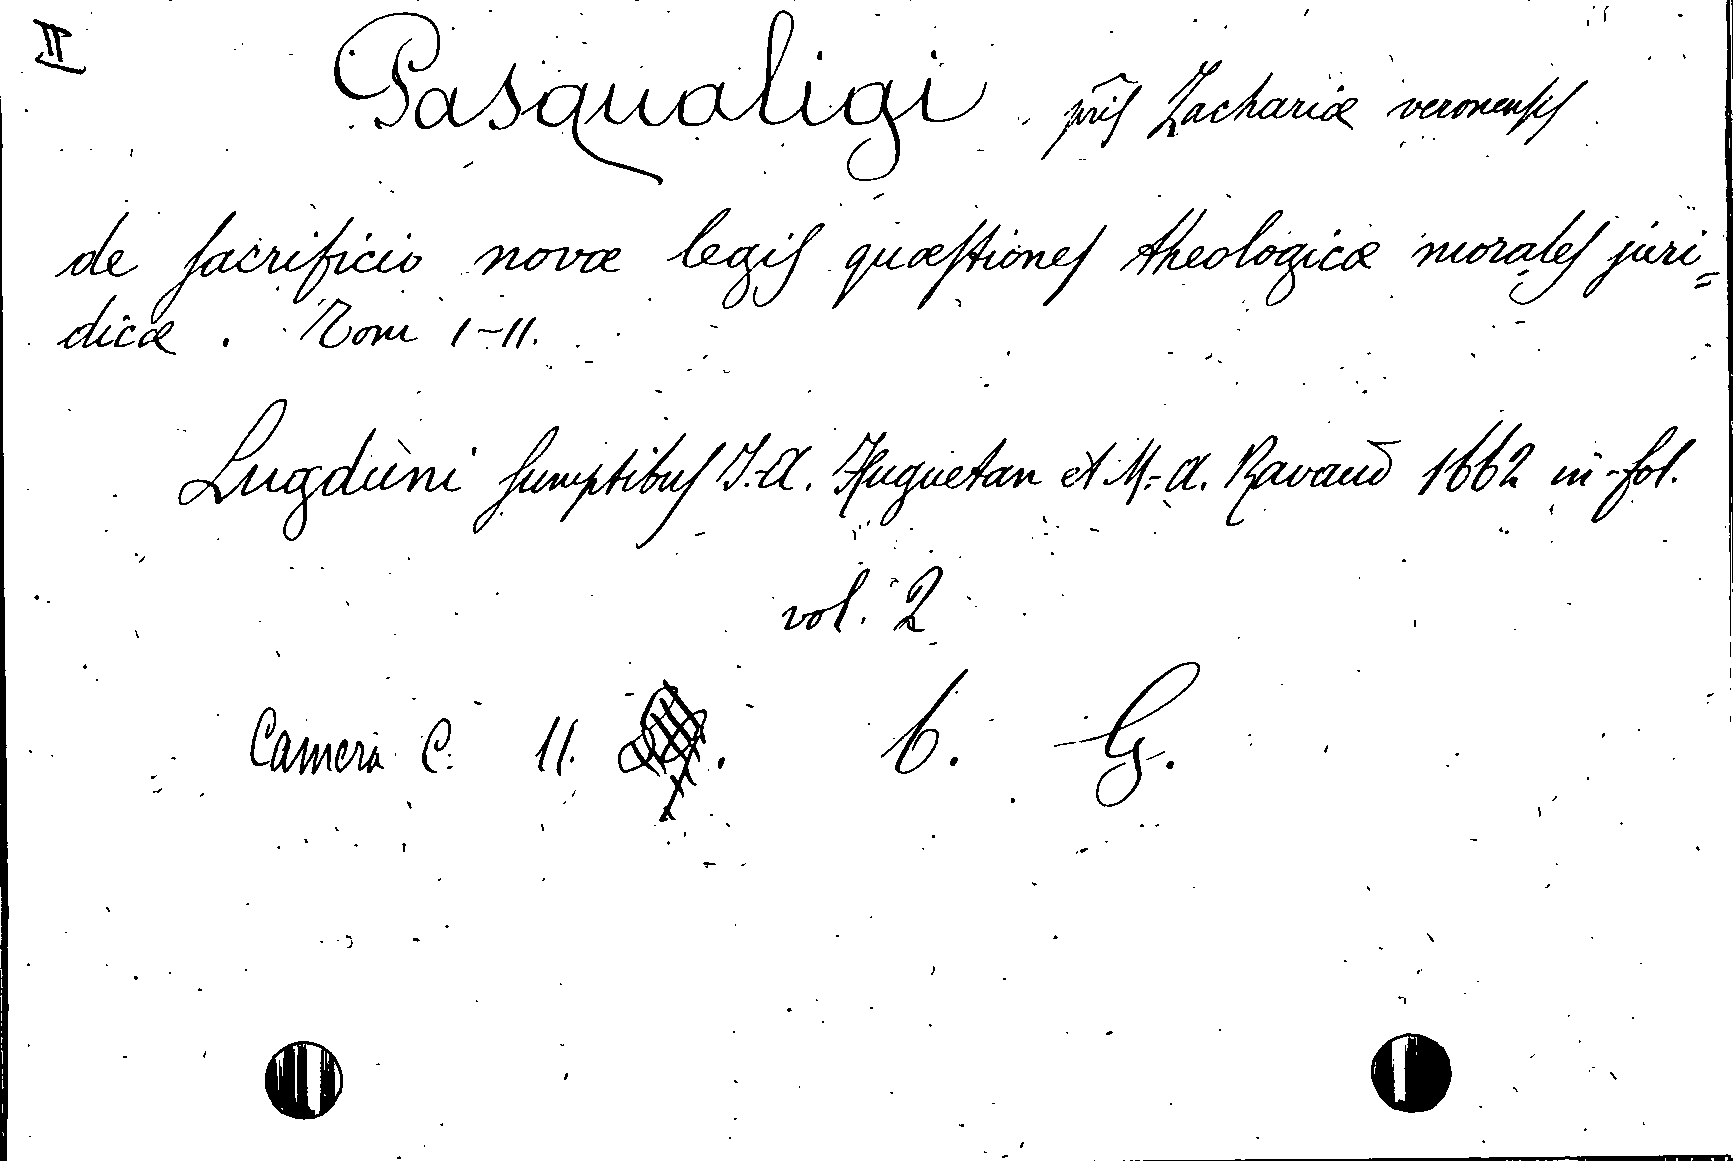 II
Pasqualigi pris Zachariæ veronensis
de sacrificio novæ legis quæstiones theologicæ morales juri=
dicæ. Tom I-II.
Lugduni sumptibus I.-A. Huguetan et M.-A. Ravaud 1662 in-fol.
vol. 2
Camera C. 11. 6. G.